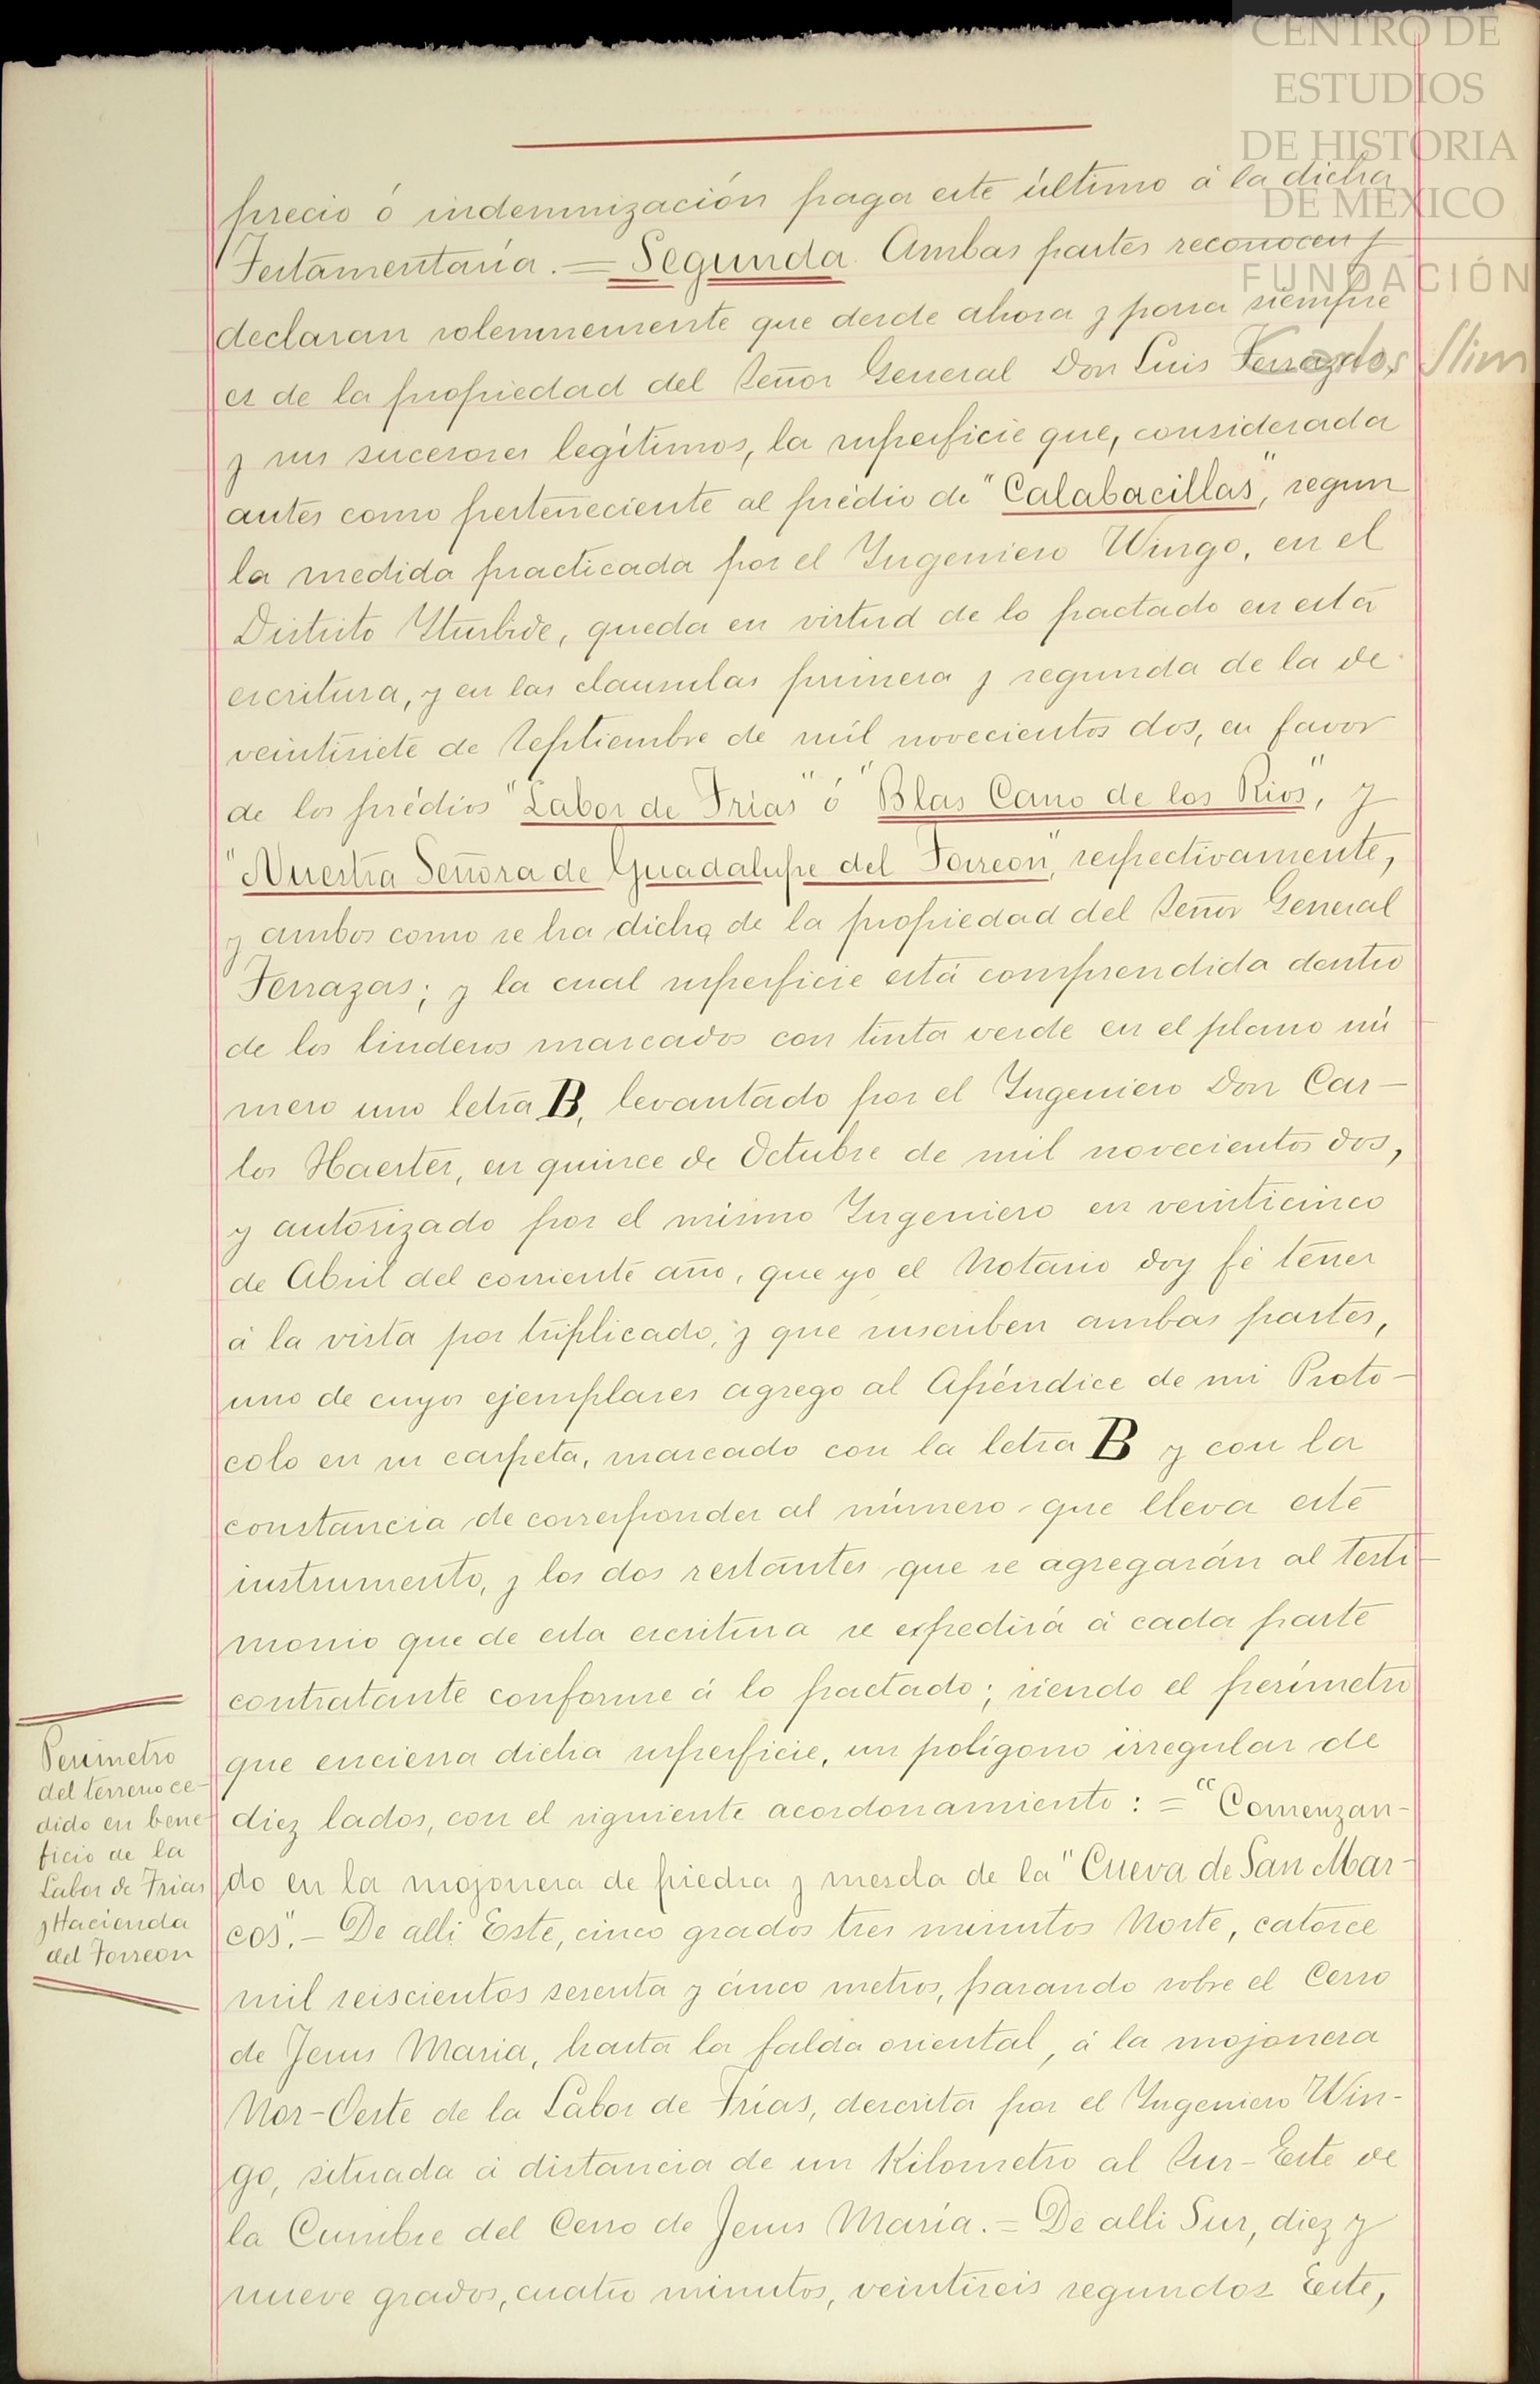 CENTRO DE
ESTUDIOS
DE HISTORIA
DE MÉXICO
FUNDACIÓN
Carlos Slim
precio ó indemnización paga este último á la dicha
Testamentaría. = Segunda. Ambas partes reconocen y
declaran solemnemente que desde ahora y para siempre
es de la propiedad del Señor General Don Luis Terrazas,
y sus sucesores legítimos, la superficie que, considerada
antes como perteneciente al prédio de "Calabacillas", segun
la medida practicada por el Yngeniero Wingo, en el
Distrito Yturbide, queda en virtud de lo pactado en esta
escritura, y en las clausulas primera y segunda de la de
veintisiete de Septiembre de mil novecientos dos, en favor
de los prédios "Labor de Frías" ó "Blas Cano de los Rios", y
"Nuestra Señora de Guadalupe del Torreon", respectivamente,
y ambos como se ha dicho, de la propiedad del Señor General
Terrazas; y la cual superficie está comprendida dentro
de los linderos marcados con tinta verde en el plano nú
mero uno letra B, levantado por el Yngeniero Don Car-
los Haerter, en quince de Octubre de mil novecientos dos,
y autorizado por el mismo Yngeniero en veinticinco
de Abril del corriente año, que yo el Notario doy fé tener
á la vista por triplicado, y que suscriben ambas partes,
uno de cuyos ejemplares agrego al Apéndice de mi Proto-
colo en su carpeta, marcado con la letra B y con la
constancia de corresponder al número que lleva este
instrumento, y los dos restantes que se agregarán al testi-
monio que de esta escritura se expedirá á cada parte
contratante conforme á lo pactado; siendo el perímetro
que encierra dicha superficie, un polígono irregular de
diez lados, con el siguiente acordonamiento: = "Comenzan-
do en la mojonera de piedra y mescla de la "Cueva de San Mar-
cos". - De alli Este, cinco grados tres minutos Norte, catorce
mil seiscientos sesenta y cinco metros, pasando sobre el Cerro
de Jesus Maria, hasta la falda oriental, á la mojonera
Nor-Oeste de la Labor de Frías, descrita por el Yngeniero Win-
go, situada á distancia de un Kilometro al Sur-Este de
la Cumbre del Cerro de Jesus María. = De alli Sur, diez y
nueve grados, cuatro minutos, veintiseis segundos Este,
Perimetro
del terreno ce-
dido en bene-
ficio de la
Labor de Frias
y Hacienda
del Torreon